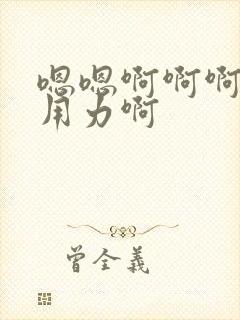 嗯嗯啊啊啊
用力啊
曾全義